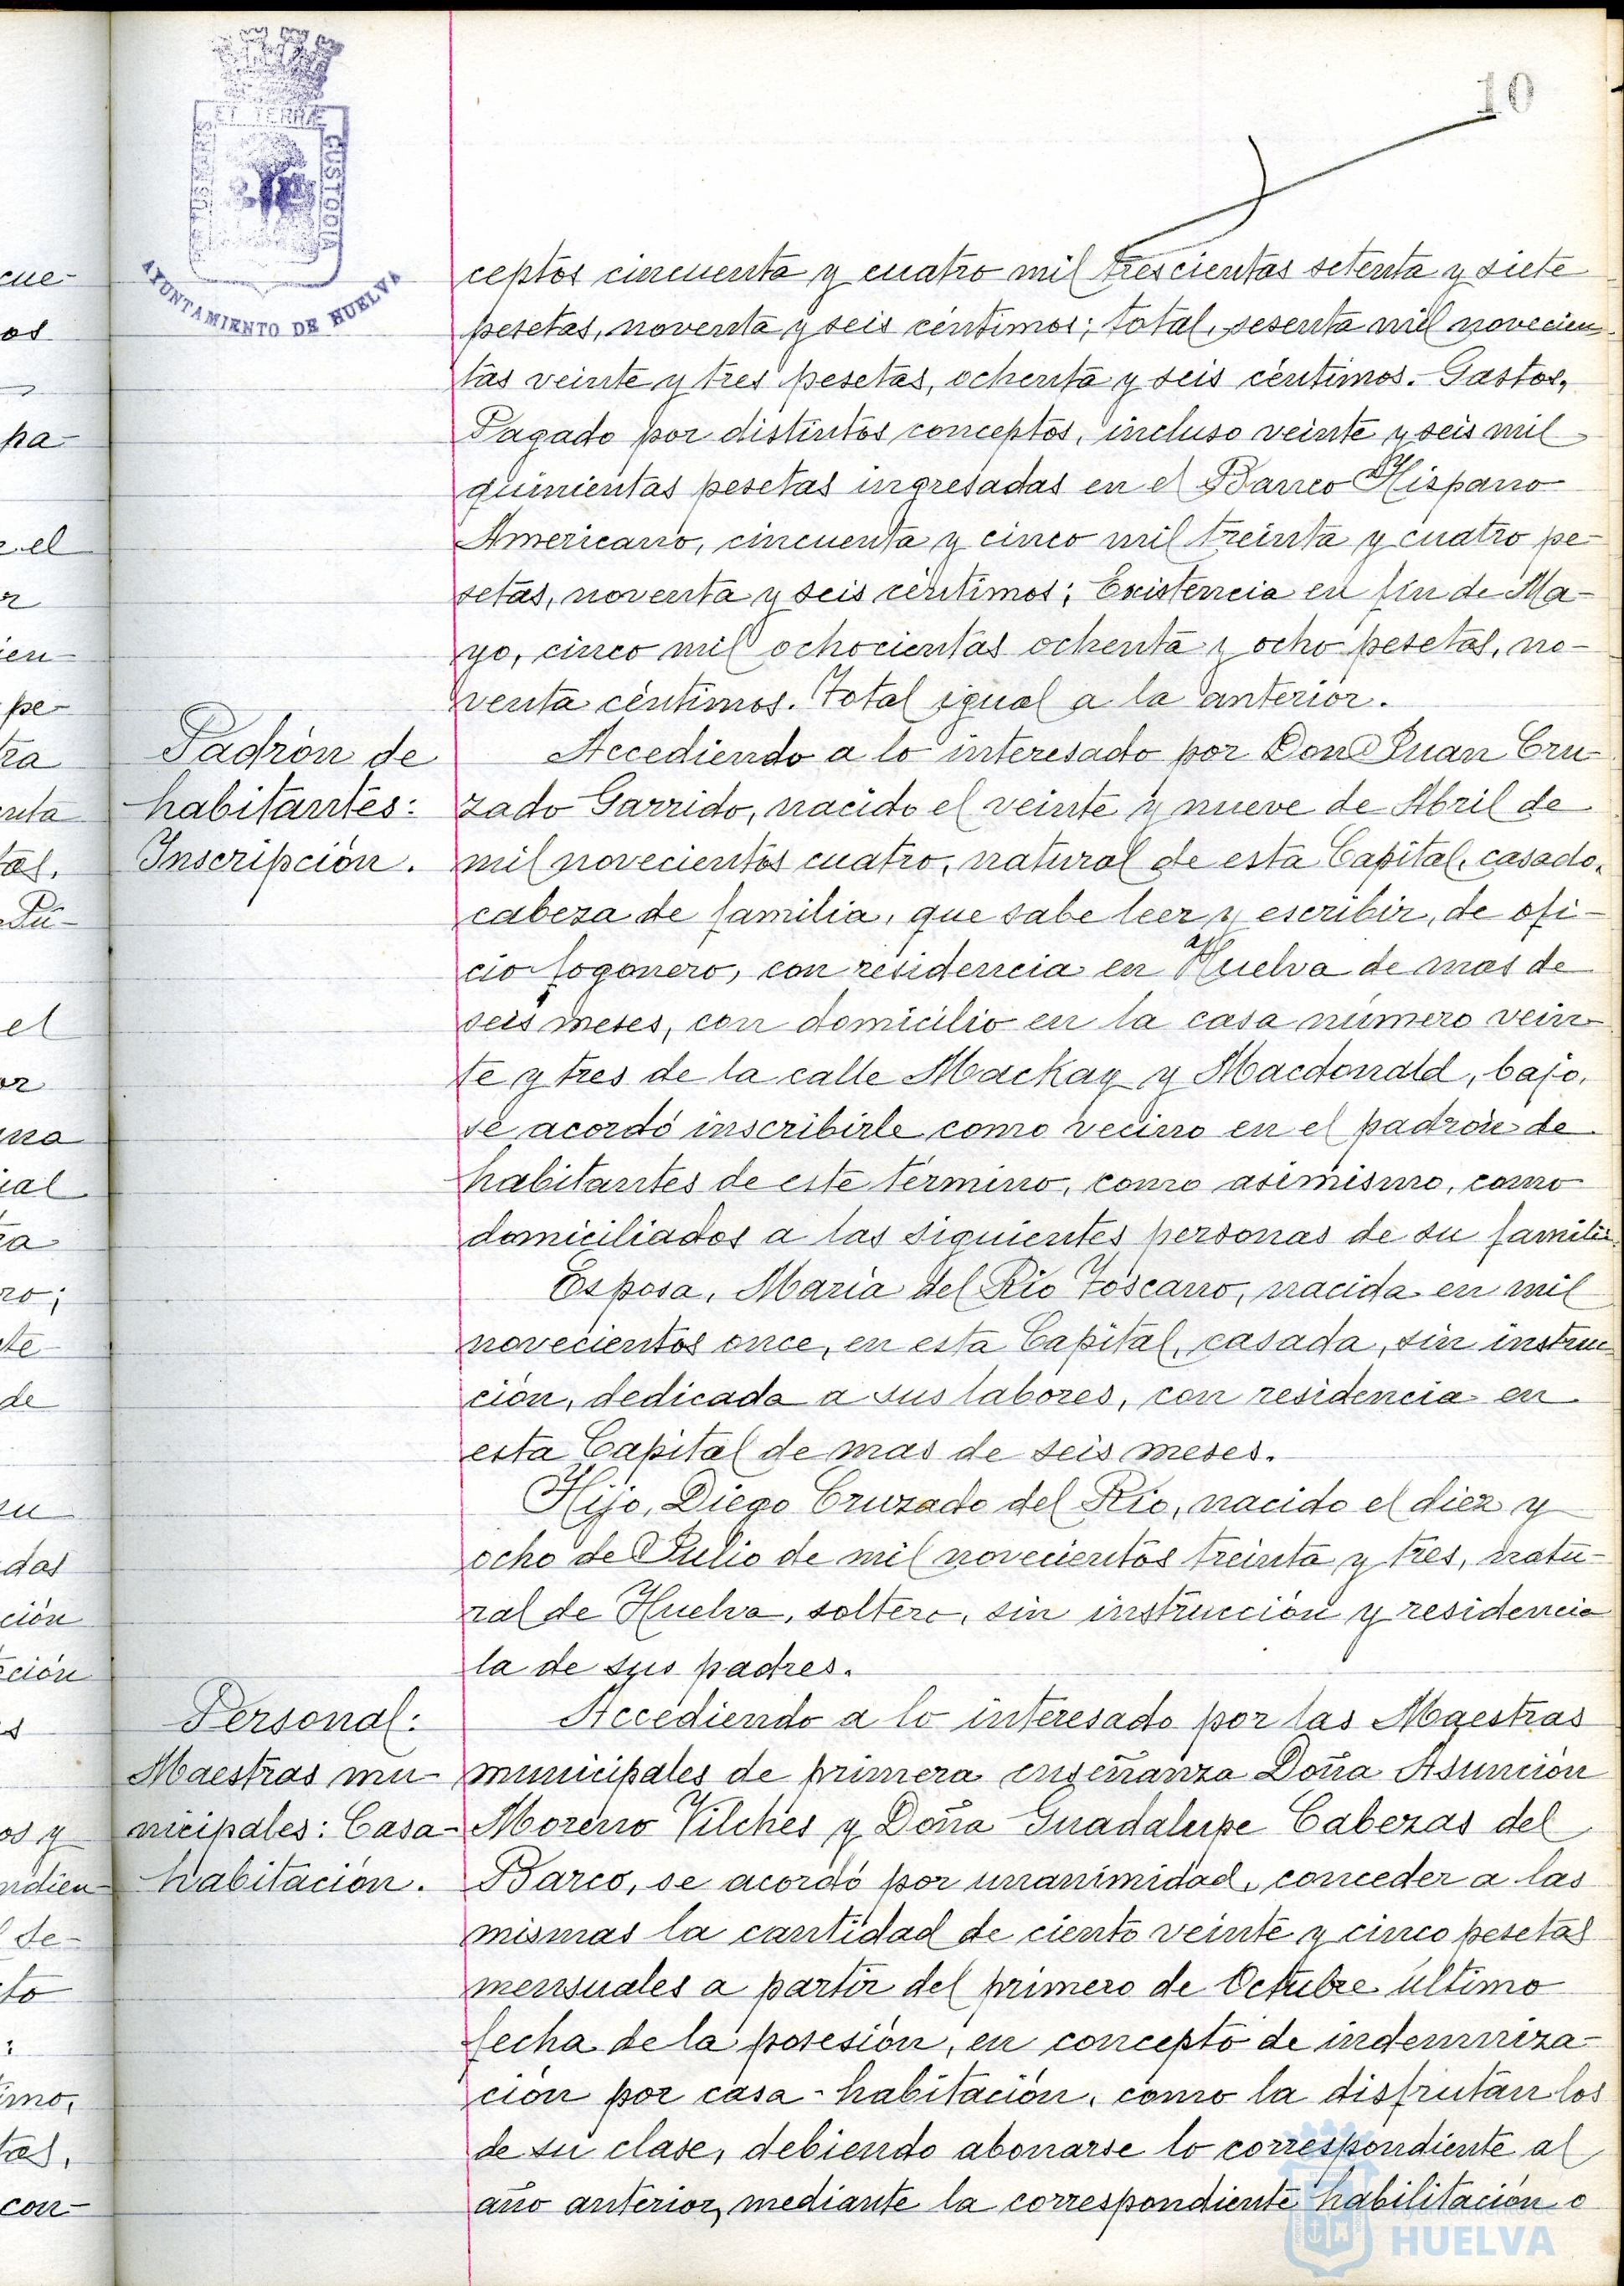 10
PORTUS MARIS
ET TERRÆ
CUSTODIA
AYUNTAMIENTO DE HUELVA
ceptos cincuenta y cuatro mil trescientas setenta y siete
pesetas, noventa y seis céntimos; total, sesenta mil novecien-
tas veinte y tres pesetas, ochenta y seis céntimos.- Gastos,
Pagado por distintos conceptos, incluso veinte y seis mil
quinientas pesetas ingresadas en el Banco Hispano
Americano, cincuenta y cinco mil treinta y cuatro pe-
setas, noventa y seis céntimos; Existencia en fin de Ma-
yo, cinco mil ochocientas ochenta y ocho pesetas, no-
venta céntimos. Total igual a la anterior.
Padrón de
habitantes:
Inscripción.
Accediendo a lo interesado por Don Juan Cru-
zado Garrido, nacido el veinte y nueve de Abril de
mil novecientos cuatro, natural de esta Capital, casado,
cabeza de familia, que sabe leer y escribir, de ofi-
cio fogonero, con residencia en Huelva de mas de
seis meses, con domicilio en la casa número vein-
te y tres de la calle Mackay y Macdonald, bajo,
se acordó inscribirle como vecino en el padrón de
habitantes de este término, como asimismo, como
domiciliados a las siguientes personas de su familia.
Esposa, Maria del Rio Toscano, nacida en mil
novecientos once, en esta Capital, casada, sin instruc-
ción, dedicada a sus labores, con residencia en
esta Capital de mas de seis meses.
Hijo, Diego Cruzado del Rio, nacido el diez y
ocho de Julio de mil novecientos treinta y tres, natu-
ral de Huelva, soltero, sin instrucción y residencia
la de sus padres.
Personal:
Maestras mu-
nicipales: Casa-
habitación.
Accediendo a lo interesado por las Maestras
municipales de primera enseñanza Doña Asunción
Moreno Vilches y Doña Guadalupe Cabezas del
Barco, se acordó por unanimidad, conceder a las
mismas la cantidad de ciento veinte y cinco pesetas
mensuales a partir del primero de Octubre último
fecha de la posesión, en concepto de indemniza-
ción por casa-habitación, como la disfrutan los
de su clase, debiendo abonarse lo correspondiente al
año anterior, mediante la correspondiente habilitación o
Ayuntamiento de
HUELVA